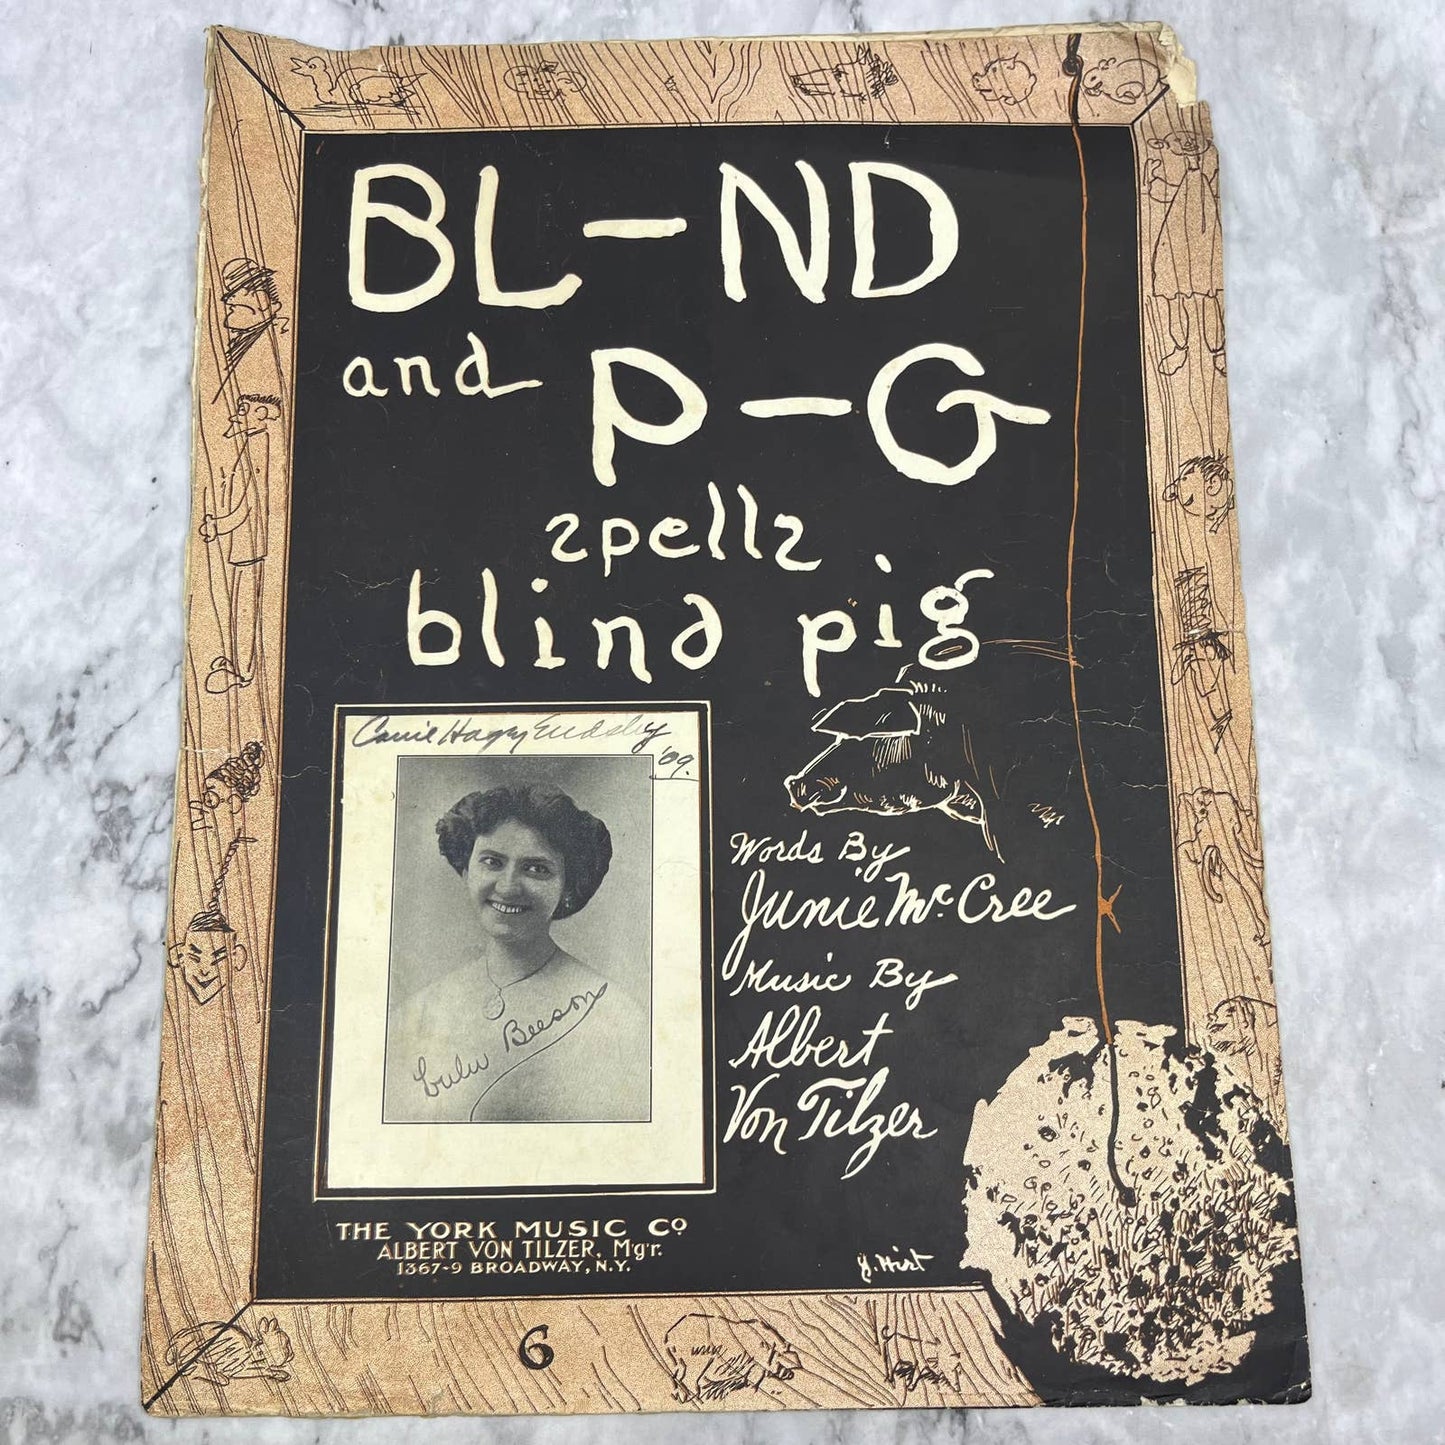 BL-ND
and P-G
spells
blind pig
Carrie '09.
Lulu Beeson
Words By
Junie Mc Cree
Music By
Albert
Von Tilzer
THE YORK MUSIC Co
ALBERT VON TILZER, Mg'r.
1367-9 BROADWAY, N.Y.
J. Hirt
6